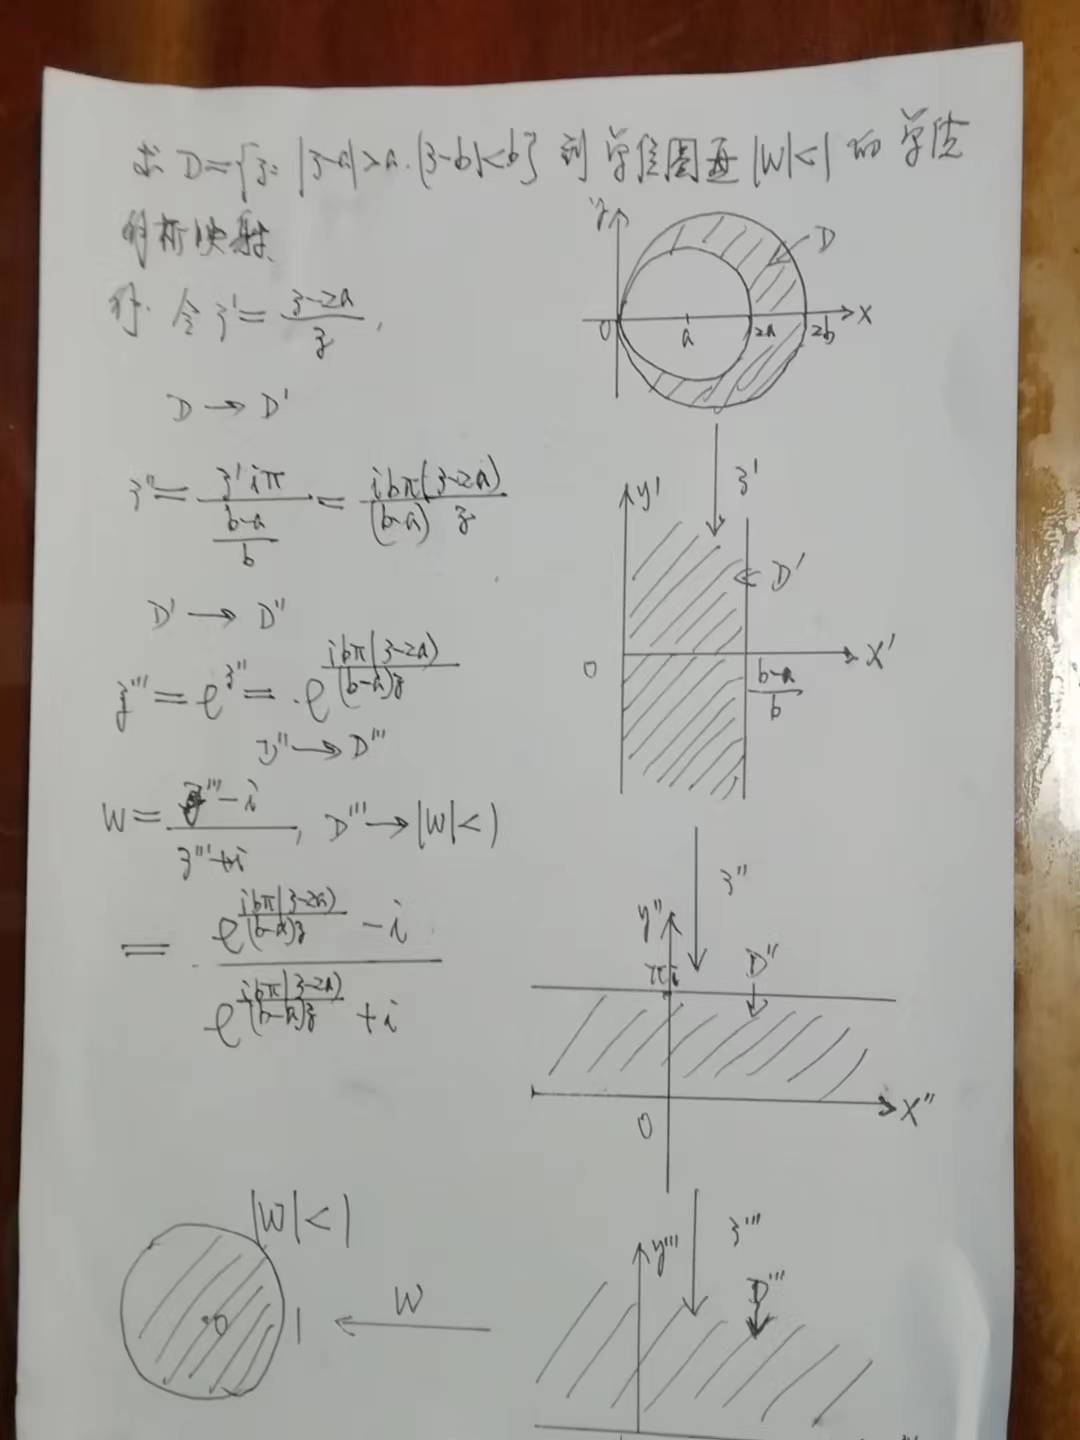 求 D={z: |z-a|>a, |z-b|<b} 到单位圆 |W|<1 的单依
解析映射.
解: 令 z' = (z-2a)/z,
D → D'
z'' = z'iπ/((b-a)/b) = ibπ(z-2a)/((b-a)z)
D' → D''
z''' = e^{z''} = e^{ibπ(z-2a)/((b-a)z)}
D'' → D'''
W = (z'''-i)/(z'''+i), D''' → |W|<1
= (e^{ibπ(z-2a)/((b-a)z)} - i)/(e^{ibπ(z-2a)/((b-a)z)} + i)
y
D
0 a 2a 2b X
z'
y'
D'
0 X'
(b-a)/b
z''
y''
πi
D''
0 X''
z'''
y'''
D'''
|W|<1
0 1
W